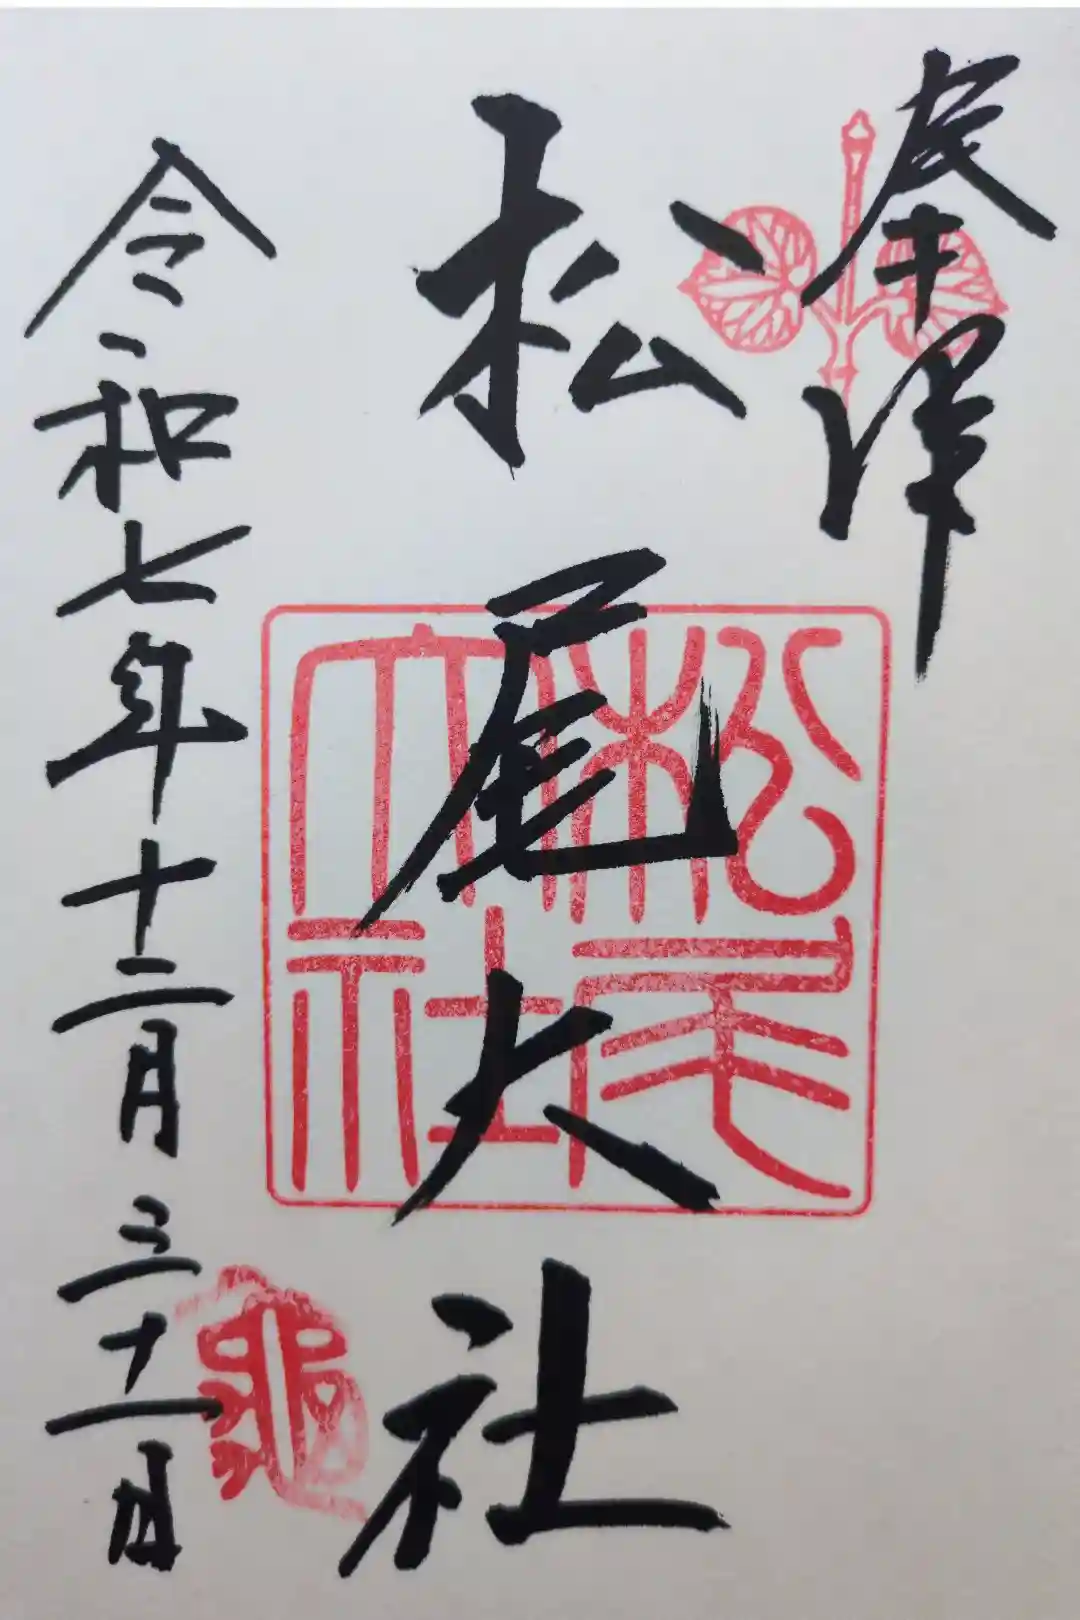 奉拝
松尾大社
松尾大社
令和七年十二月三十一日